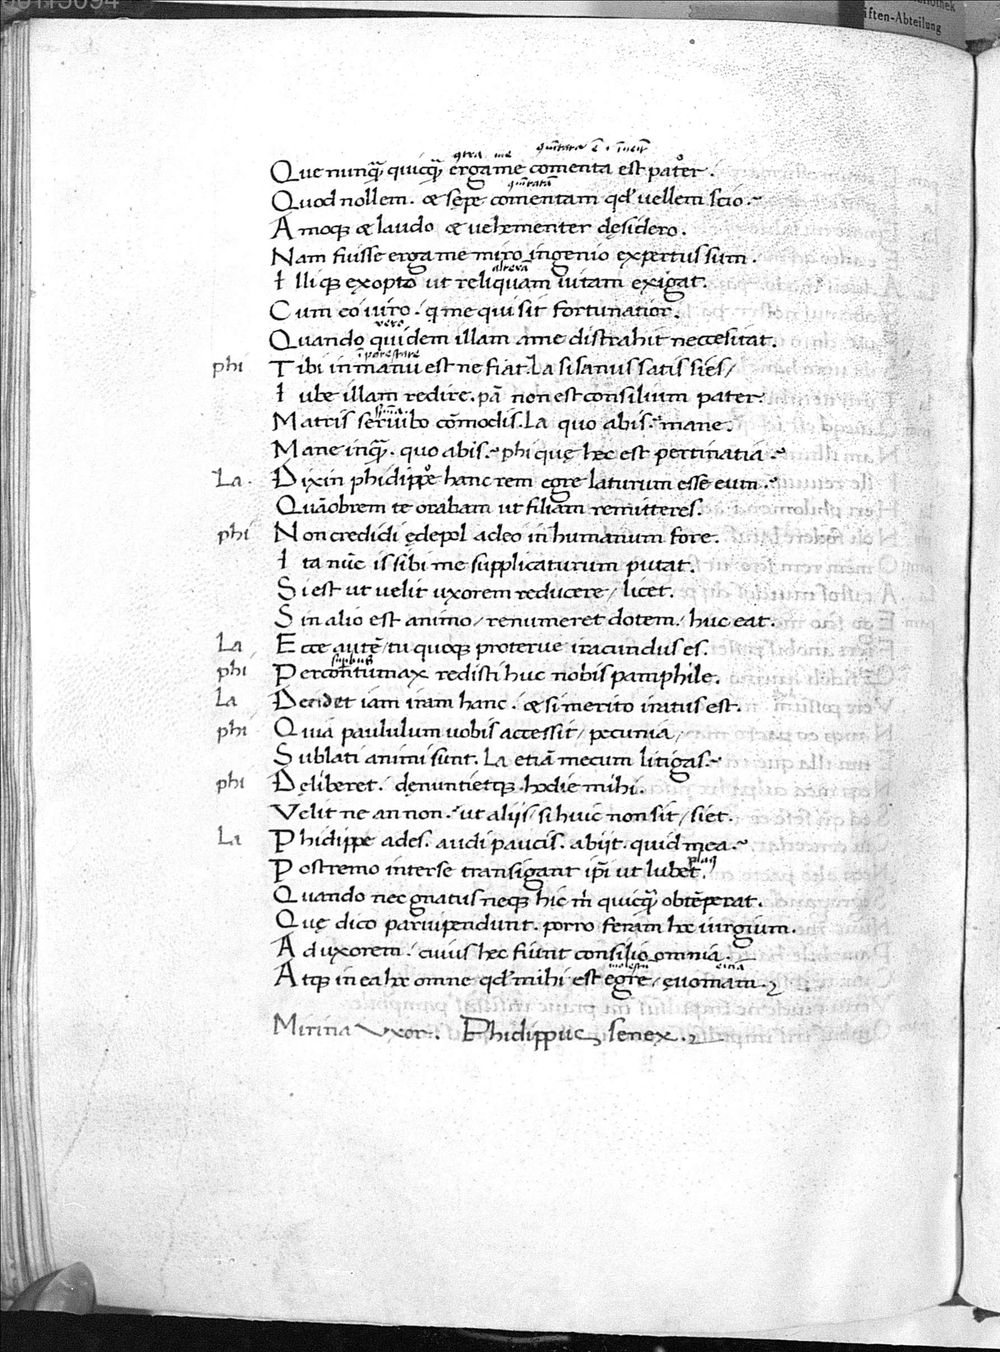 Que nunq̃ quicq̃ erga me comenta est pater.
Quod nollem. & sepe comentam qd' vellem scio.
Amoq; & laudo & vehementer desidero.
Nam fuisse erga me miro ingenio expertus sum.
Illiq; exopto ut reliquam vitam exigat.
Cum eo viro. q me qui sit fortunatior.
vero
Quando quidem illam a me distrahit neccesitat.
ī potestate
phi Tibi in manu est ne fiat. La si sanus satis sies/
Iube illam redire. pā non est consilium pater.
Matris servibo cōmodis. La quo abis. mane.
Mane inq̃. quo abis. phi quę hec est pertinatia.
La. Dixin phidippe hanc rem egre laturum esse eum.
Quāobrem te orabam ut filiam remitteres.
phi Non credidi ędepol adeo inhumanum fore.
Ita nūc is sibi me supplicaturum putat.
Si est ut velit uxorem reducere/ licet.
Sin alio est animo/ renumeret dotem/ huc eat.
La Ecce autē/ tu quoq; proterve iracundus es.
phi Percontumax redisti huc nobis pamphile.
La Decidet iam iram hanc. & si merito iratus est.
phi Quia paululum vobis accessit/ pecunia/
Sublati animi sunt. La etiā mecum litigas.
phi Deliberet. denuntietq; hodie mihi.
Velit ne an non. ut alij/ si huic non sit/ siet.
La Phidippe ades. audi paucis. abijt. quid mea.
Postremo inter se transigant ipi ut lubet.
Quando nec gnatus neq; hic m̄ quicq̃ obtēperat.
Quę dico parvipendunt. porro feram hoc iurgium.
Ad uxorem. cuius hec fiunt consilio omnia.
Atq; in ea hoc omne qd' mihi est egre/ evomam.
Mirina Vxor. Phidippus senex.